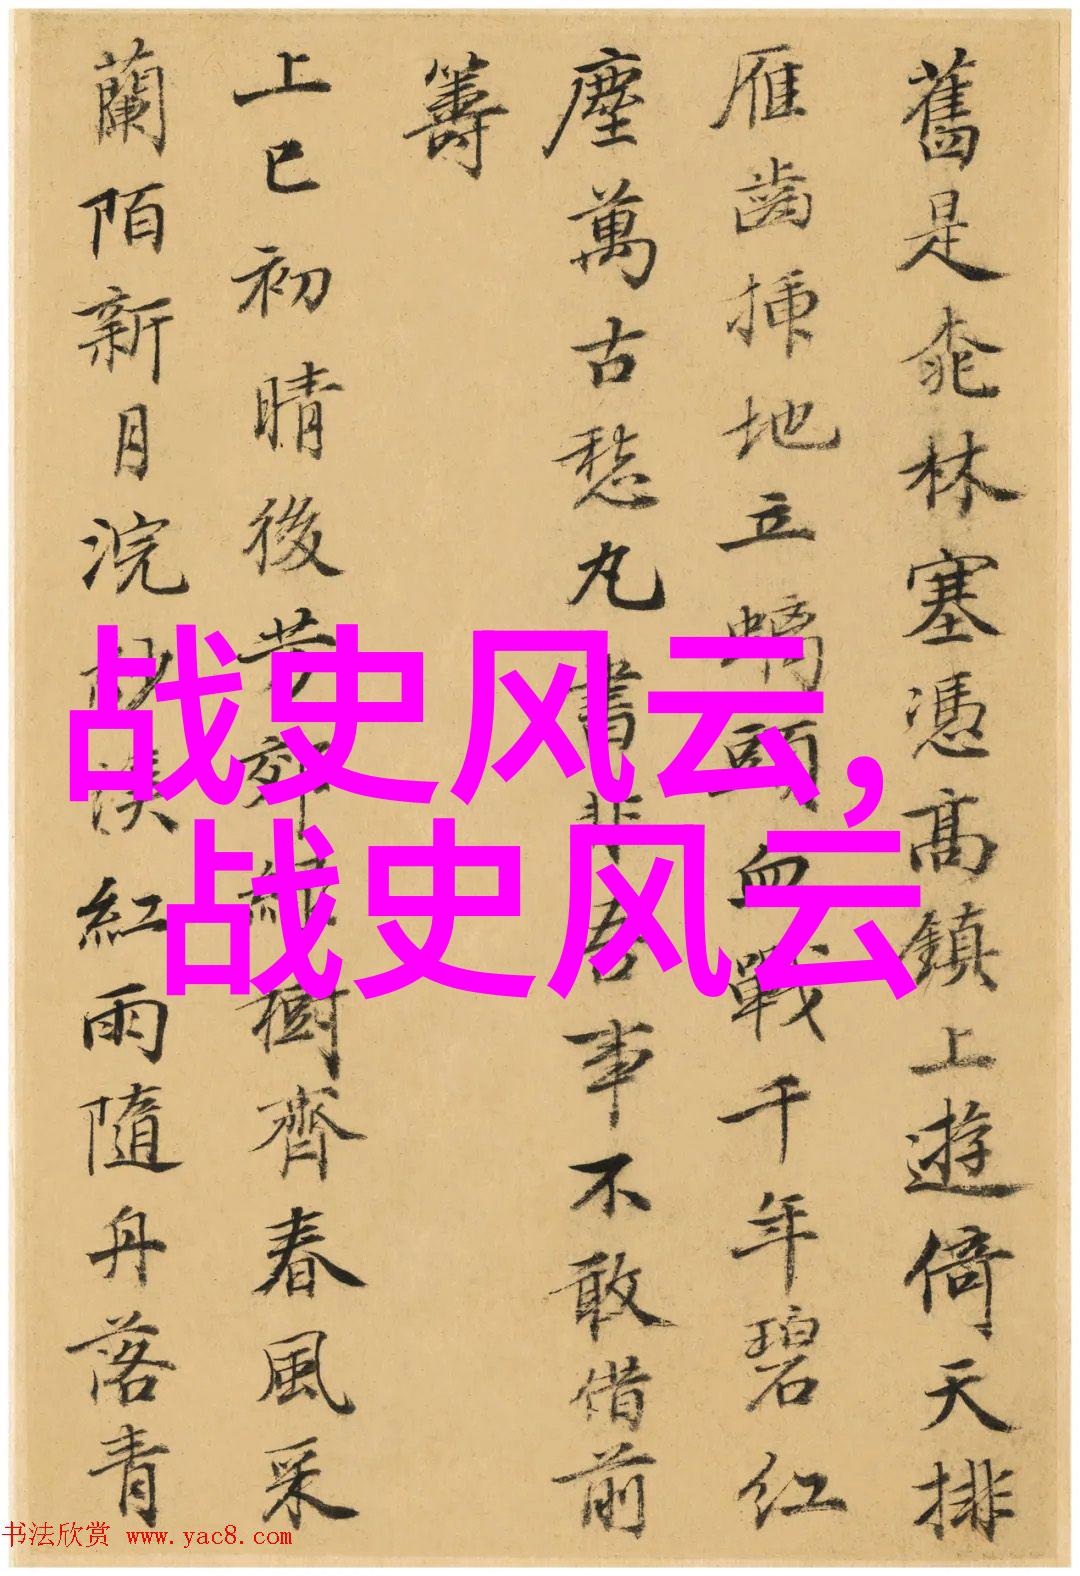 舊是桃林塞憑高鎮上遊倚天排
雁齒插地立螭頭血戰千年碧紅
塵萬古愁丸書非吾事不敢借前
籌
上巳初晴後芳郊樹齊春風采
蘭陌新月浣紗溪紅雨隨舟落青
战史风云,
战史风云
书法欣赏 www.yac8.com